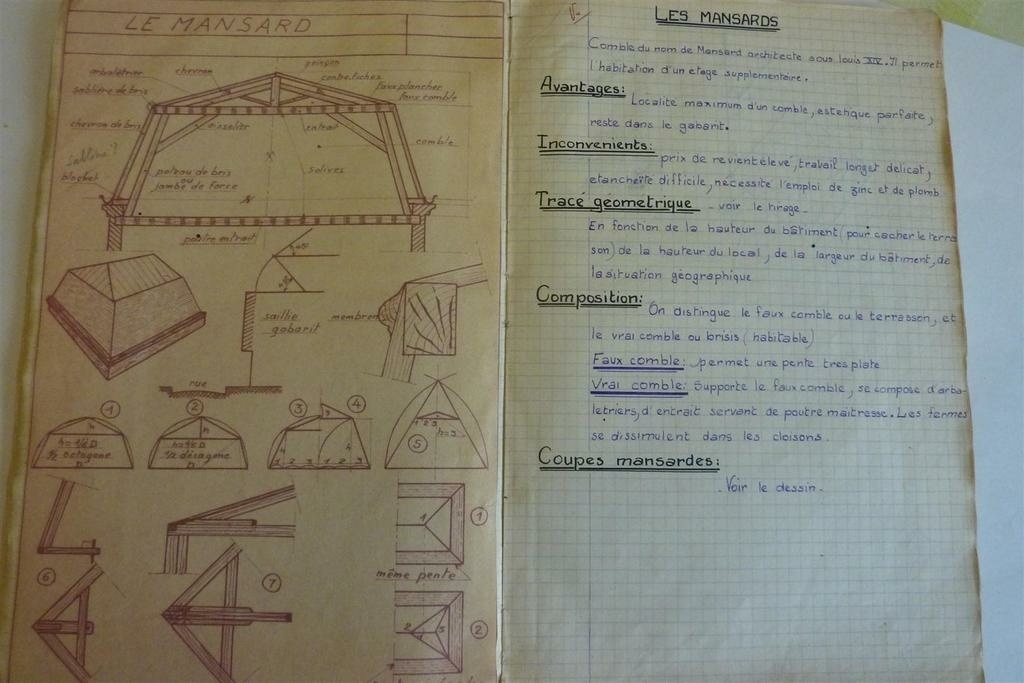 LE MANSARD
poinçon
arbalétrier
chevron
contrefiches
sablière de bris
faux plancher
faux comble
chevron de bris
aisselier
entrait
comble
sablière ?
blochet
poteau de bris
ou
jambe de force
solives
poutre entrait
45°
45°
saillie
gabarit
membron
rue
1
2
3
4
5
h
h = 1/6 D
1/2 octogone
D
h
h = 1/5 D
1/2 décagone
D
1 2 3 1 2 3
1 2 3
h = 3
1
1
même pente
6
7
2
2 3
1
LES MANSARDS
Comble du nom de Mansard architecte sous louis XIV. Il permet
l'habitation d'un etage supplementaire.
Avantages:
Localité maximum d'un comble, estetique parfaite,
reste dans le gabarit.
Inconvenients:
prix de revient élevé, travail long et delicat,
etancheïte difficile, nécessite l'emploi de zinc et de plomb
Tracé géometrique - voir le tirage -
En fonction de la hauteur du bâtiment (pour cacher le terra
sson) de la hauteur du local, de la largeur du bâtiment, de
la situation géographique
Composition:
On distingue le faux comble ou le terrasson, et
le vrai comble ou brisis (habitable)
Faux comble: permet une pente tres plate
Vrai comble: Supporte le faux comble, se compose d'arba-
letriers, d'entrait servant de poutre maitresse. Les fermes
se dissimulent dans les cloisons.
Coupes mansardes:
- Voir le dessin -